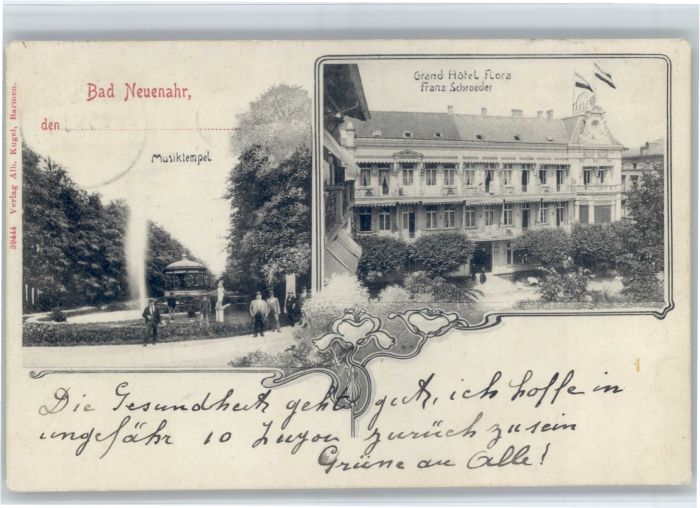 Bad Neuenahr,
den
Musiktempel
Grand Hôtel Flora
Franz Schroeder
39444 Verlag Alb. Kugel, Barmen.
Die Gesundheit geht gut, ich hoffe in
ungefähr 10 zurück zu sein
Grüne an Alle!